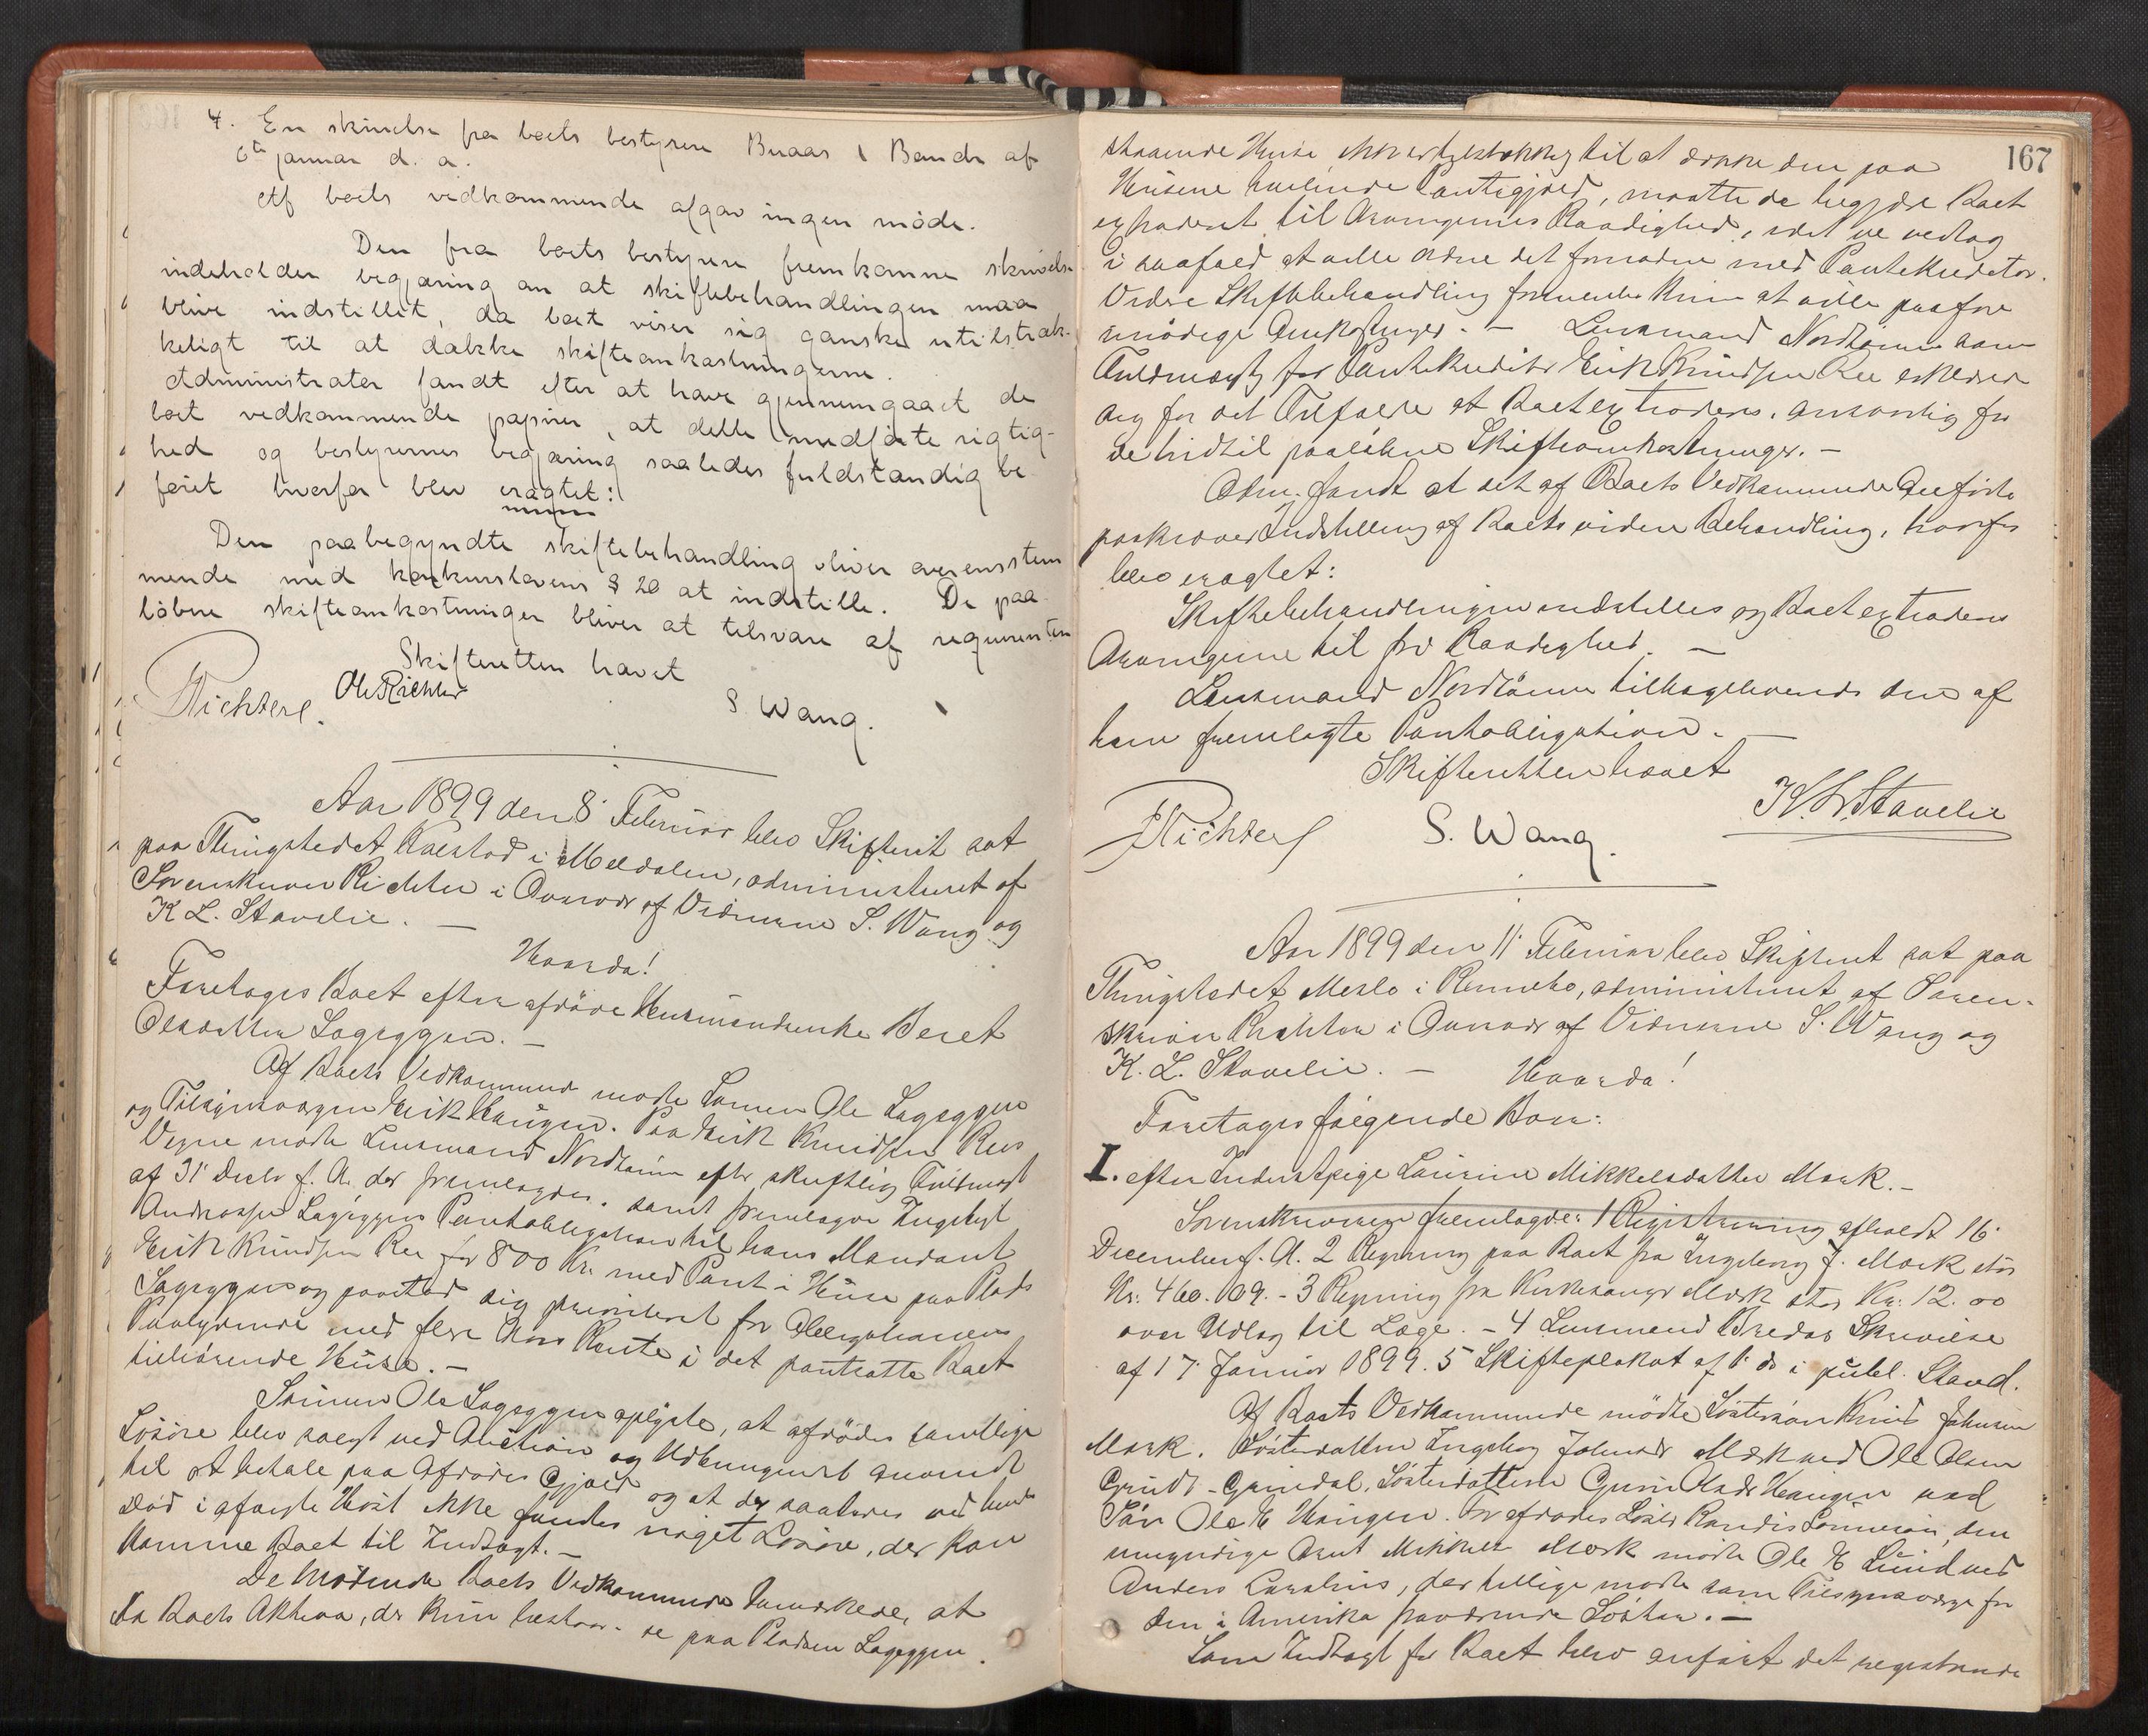 4. En skrivelse fra boets bestyrere Buaas & Bands af
6te januar d. a.
Af boets vedkommende afgav ingen møde.
Den fra boets bestyrere fremkomne skrivelse
indeholder begjæring om at skiftebehandlingen maa
blive indstillet, da boet viser sig ganske utilstræk-
keligt til at dække skifteomkostningerne.
Administrator fandt efter at have gjennemgaaet de
boet vedkommende papirer, at dette medførte rigtig-
hed og bestyrernes begjæring saaledes fuldstændig be-
føiet hvorfor blev eragtet:
Den paabegyndte skiftebehandling bliver overensstem
mende med konkurslovens § 20 at indstille. De paa-
løbne skifteomkostninger bliver at tilsvare af requirenten
Skifteretten hævet
Richter. Ole Richter S. Wang.
Aar 1899 den 8' Februar blev Skifteret sat
paa Thingstedet Kalstad i Meldalen, administreret af
Sorenskriver Richter i Overvær af Vidnerne S. Wang og
K L. Stavelie. —
Hvorda!
Foretoges Boet efter afdøde Husmandsenke Beret
Olsdatter Lageggen. —
Af Boets Vedkommende mødte Sønnen Ole Lageggen
og Tilsynsværgen Erik Haugen. Paa Erik Knudsen Rees
Vegne mødte Lensmand Nordtømme efter skriftlig Fuldmagt
af 31' Decbr f. A. der fremlagdes, samt fremlagde Ingebrigt
Andreassen Lageggens Pantobligation til hans Mandant
Erik Knudsen Ree for 800 Kr. med Pant i Huse paa Plads
Lageggen og paastod sig prioriteret for Obligationens
Paalydende med flere Aars Rente i det pantsatte Boet
tilhørende Huse. —
Sønnen Ole Lageggen oplyste, at afdødes samtlige
Løsøre blev solgt ved Auktion og Udbringendet anvendt
til at betale paa Afdødes Gjæld og at der saaledes ved hendes
Død i afvigte Høst ikke fandtes noget Løsøre, der kan
komme Boet til Indtægt. —
De mødende Boets Vedkommende bemærkede, at
da Boets Aktiva, der kun bestaar i de paa Pladsen Lageggen
167
staaende Huse ikke er tilstrækkelig til at dække den paa
Husene hvilende Pantegjæld, maatte de begjære Boet
extraderet til Arvingernes Raadighed, idet de vedtog
i saafald at ville ordne det fornødne med Pantekreditor.
Videre Skiftebehandling formentes kun at ville paaføre
unødige Omkostninger. — Lensmand Nordtømme som
Fuldmægtig for Pantekreditor Erik Knudsen Ree erklærede
sig for det Tilfælde at Boet extraderes, ansvarlig for
de hidtil paaløbne Skifteomkostninger. —
Adm. fandt at det af Boets Vedkommende Anførte
paakræver Indstilling af Boets videre Behandling, hvorfor
blev eragtet:
Skiftebehandlingen indstilles og Boet extraderes
Arvingerne til fri Raadighed. —
Lensmand Nordtømme tilbageleveredes den af
ham fremlagte Pantobligation. —
Skifteretten hævet
Richter S. Wang. K. L. Stavelie
Aar 1899 den 11' Februar blev Skifteret sat paa
Thingstedet Merlo i Rennebo, administreret af Soren-
skriver Richter i Overvær af Vidnerne S. Wang og
K. L. Stavelie. — Hvorda!
Foretoges følgende Boer:
I. efter Inderstpige Laurine Mikkelsdatter Mærk. —
Sorenskriveren fremlagde: 1 Registrering afholdt 16'
December f. A. 2 Regning paa Boet fra Ingeborg J. Mærk stor
Kr. 460.69. - 3 Regning fra Kirkesanger Mærk stor Kr. 12.00
over Udlæg til Læge. - 4 Lensmand Bredes Skrivelse
af 17' Januar 1899. 5 Skifteplakat af 1' ds i publ. Stand.
Af Boets Vedkommende mødte Søstersøn Knud Johnsen
Mærk. Søsterdatter Ingeborg Johnsdr Mærk ved Ole Olsen
Grindt - Grindal, Søsterdatteren Guru Olsdr Haugen ved
Søn Ole E Haugen. For afdødes Søster Randis Sønnesøn, den
umyndige Arnt Mikkelsen Mærk mødte Ole E Lund ved
Anders Lucasius, der tillige mødte som Tilsynsværge for
den i Amerika fraværende Søster. —
Som Indtægt for Boet blev anført det registrerede